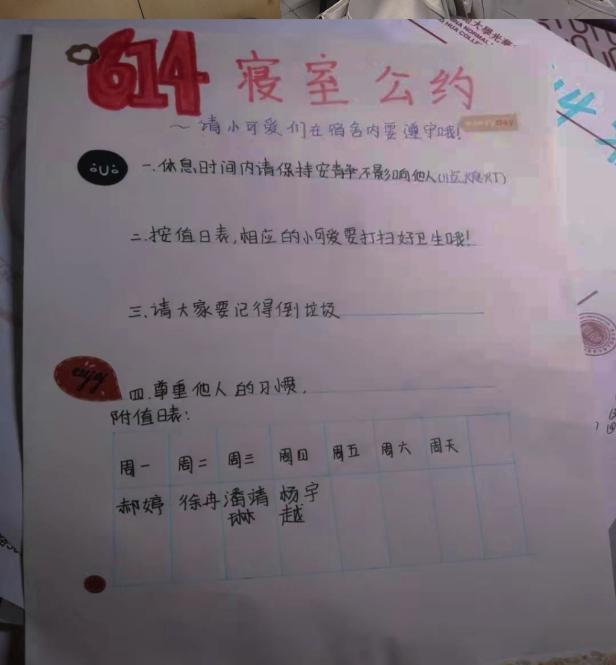 614 寝室公约
～请小可爱们在宿舍内要遵守哦!
一.休息时间内请保持安静不影响他人(11点熄灯)
二.按值日表,相应的小可爱要打扫好卫生哦!
三.请大家要记得倒垃圾
enjoy
四.尊重他人的习惯.
附值日表:
周一 周二 周三 周四 周五 周六 周天
郝婷 徐冉 潘靖琳 杨宇越